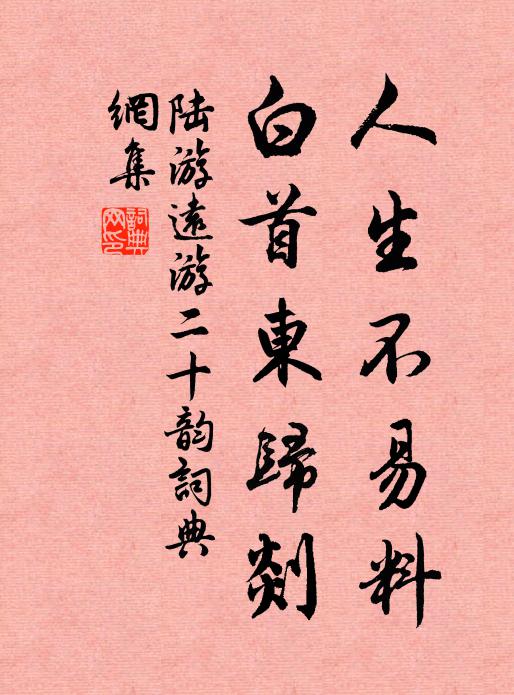 人生不易料
白首東歸剡
陆游遠游二十韵詞典
網集
詞典網印